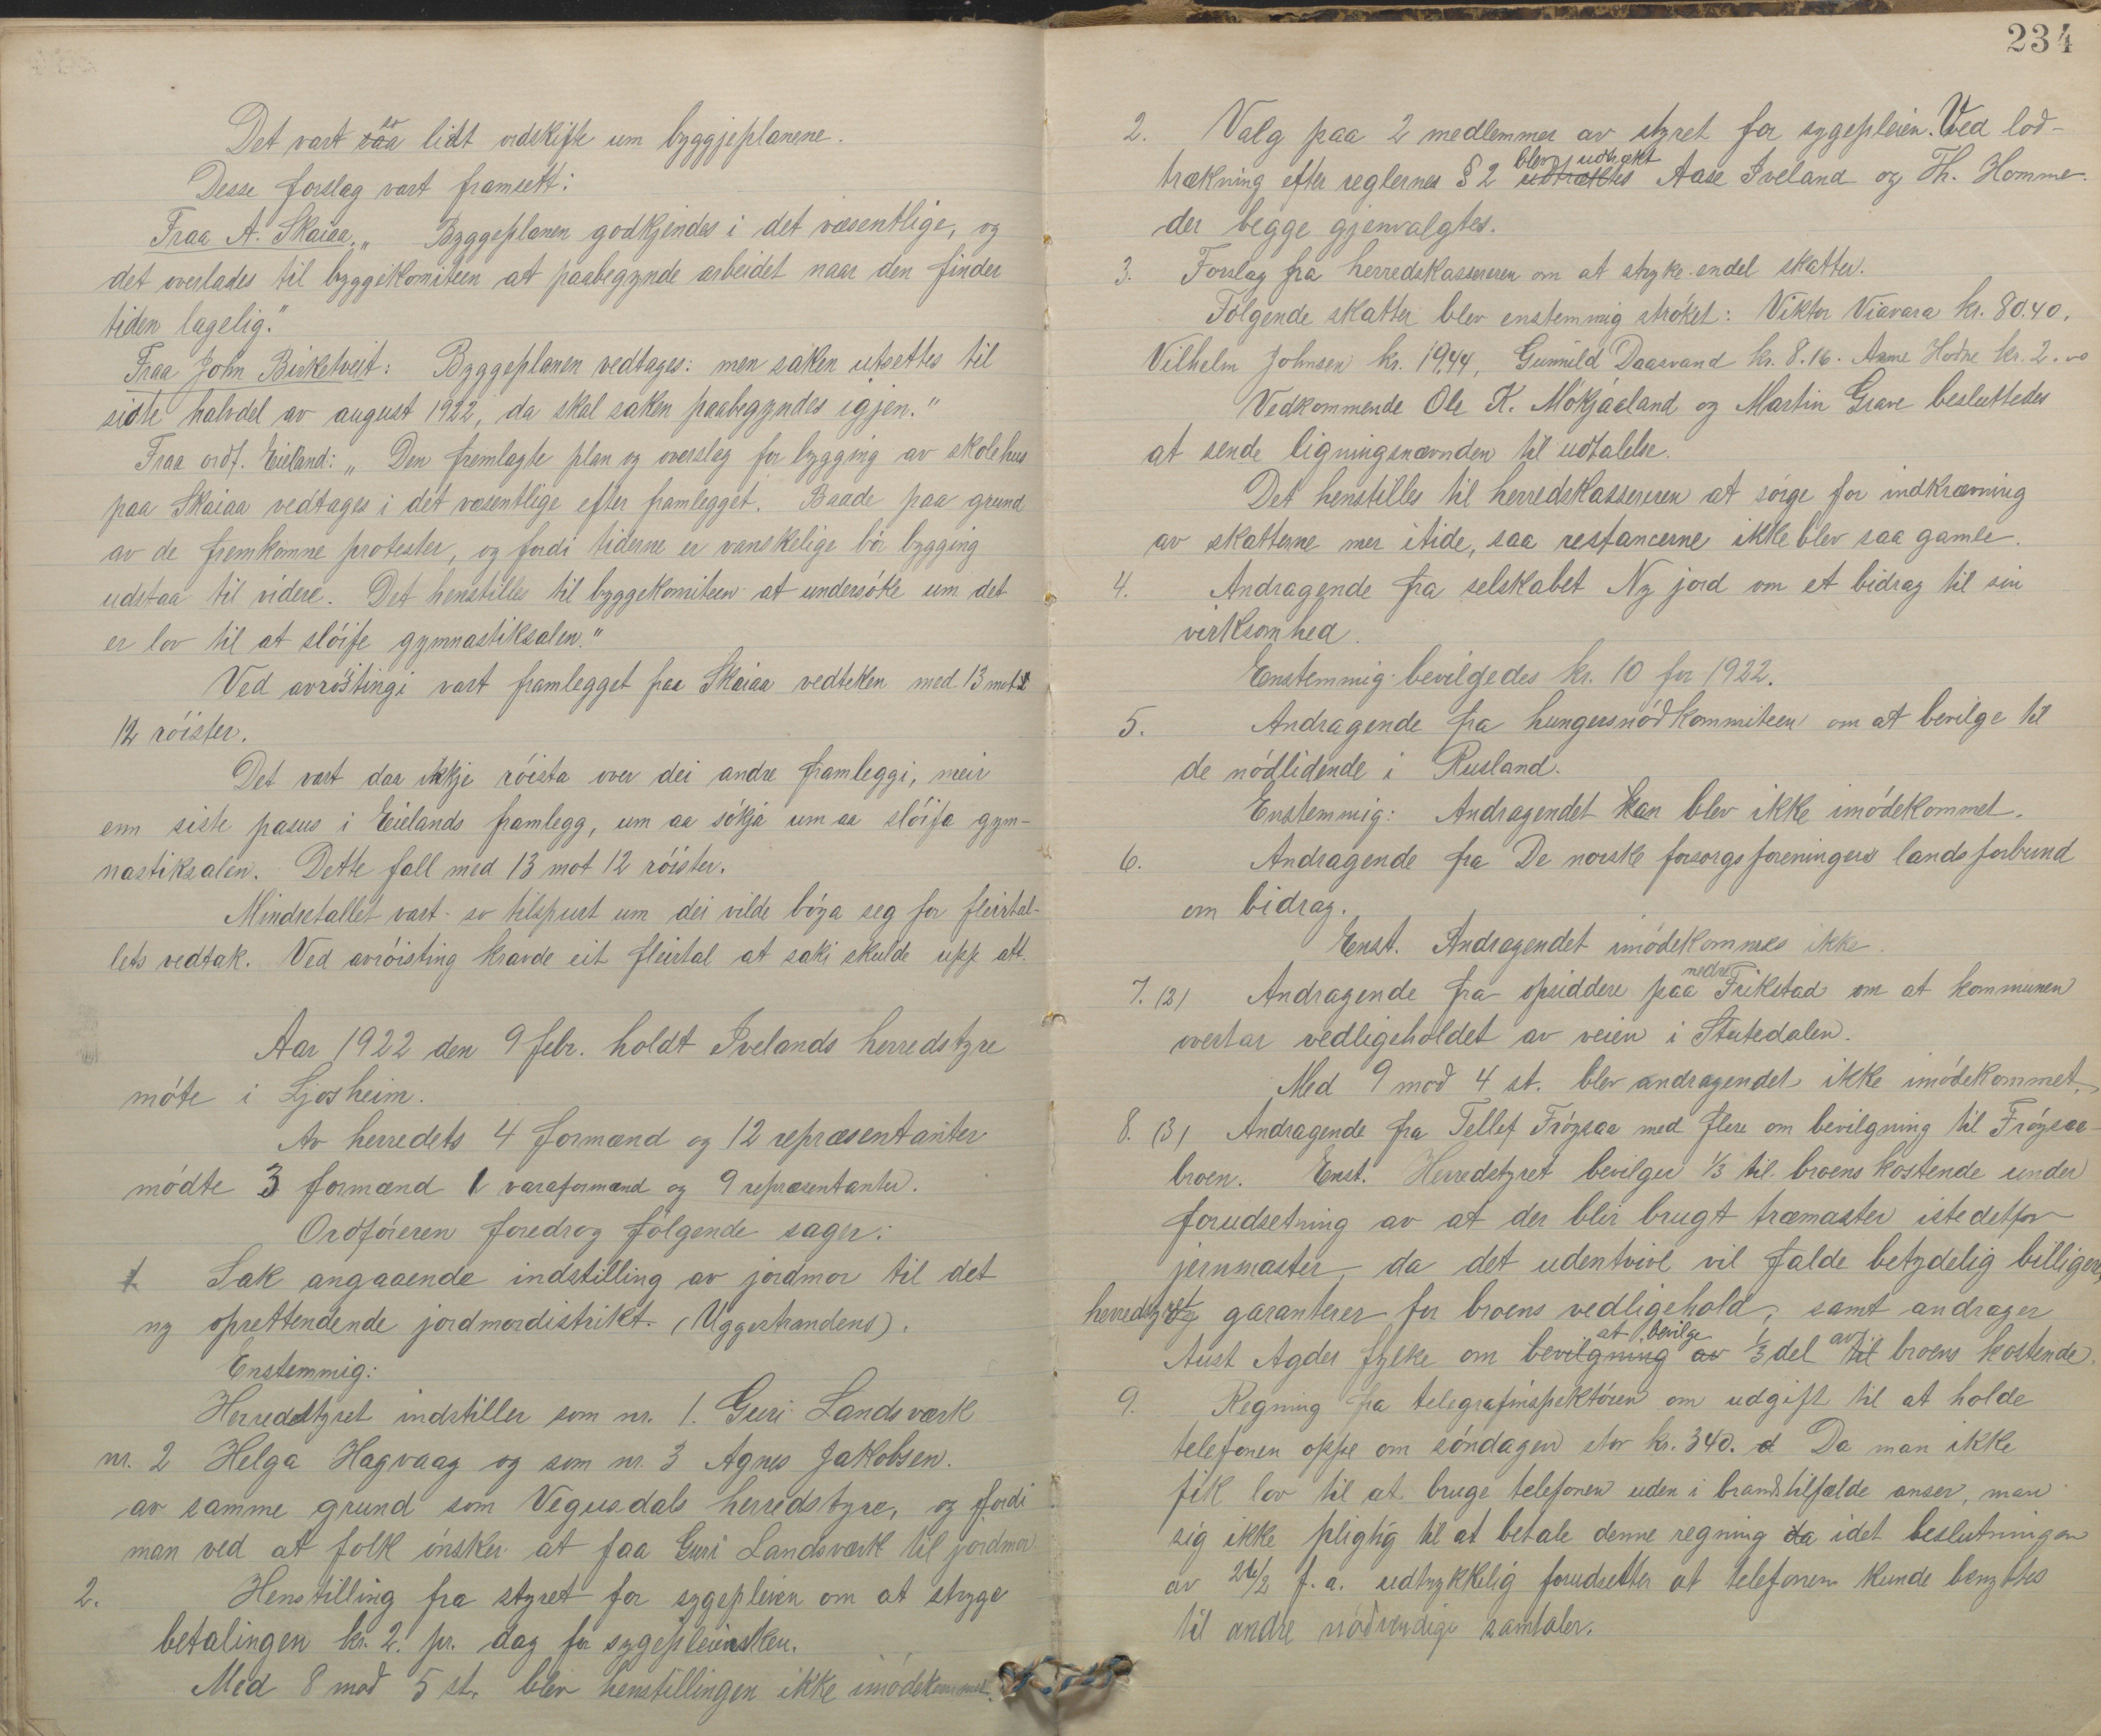 Det vart so lidt ordskifte um byggjeplanene.
Desse forslag vart framsett:
Fraa A. Skaiaa. „ Byggeplanen godkjendes i det væsentlige, og
det overlades til byggekomiteen at paabegynde arbeidet naar den finder
tiden lagelig."
Fraa John Birketveit: Byggeplanen vedtages: men saken utsettes til
sidte halvdel av august 1922, da skal saken paabegyndes igjen."
Fraa ordf. Eieland: „ Den fremlagte plan og overslag for bygging av skolehus
paa Skaiaa vedtages i det væsentlige efter framlegget. Baade paa grund
av de fremkomne protester, og fordi tiderne er vanskelige bör bygging
udstaa til videre. Det henstilles til byggekomiteen at undersöke um det
er lov til at slöife gymnastiksalen."
Ved avröistingi vart framlegget fraa Skaiaa vedteken med 13 mot
12 röister.
Det vart daa ikkje röista over dei andre framleggi, meir
enn siste pasus i Eielands framlegg, um aa sökja um aa slöifa gym-
nastiksalen. Dette fall med 13 mot 12 röister.
Mindretallet vart so tilspurt um dei vilde böya seg for fleirtal-
lets vedtak. Ved avröisting kravde eit fleirtal at saki skulde upp att.
Aar 1922 den 9 febr. holdt Ivelands herredstyre
möte i Ljosheim.
Av herredets 4 formænd og 12 repræsentanter
mödte 3 formænd 1 varaformænd og 9 repræsentanter.
Ordföreren foredrog fölgende sager:
1 Sak angaaende indstilling av jordmor til det
ny oprettendende jordmordistrikt. (Uggestrandens).
Enstemmig:
Herredstyret indstiller som nr. 1. Guri Landsværk
nr. 2 Helga Hagvaag og som nr. 3 Agnes Jakobsen.
av samme grund som Vegusdals herredstyre, og fordi
man ved at folk önsker at faa Guri Landsværk til jordmor
2. Henstilling fra styret for sygepleien om at stryge
betalingen kr. 2. pr. dag for sygepleiersken.
Med 8 mod 5 st. blev henstillingen ikke imödekommet.
234
2. Valg paa 2 medlemmer av styret for sygepleien. Ved lod-
trækning efter reglernes § 2 blev udtrækt Aase Iveland og Th. Homme
der begge gjenvalgtes.
3. Forslag fra herredskassereren om at stryke endel skatter.
Fölgende skatter blev enstemmig ströket: Viktor Viavara kr. 80.40.
Vilhelm Johnsen kr. 19,44, Gunnuld Daasvand kr. 8.16. Anne Hodne kr. 2.00
Vedkommende Ole K. Mökjaaland og Martin Grave besluttedes
at sende ligningsnævnden til udtalelse.
Det henstilles til herredskassereren at sörge for indkrævning
av skatterne mer itide, saa restancerne ikke blev saa gamle.
4. Andragende fra selskabet Ny jord om et bidrag til sin
virksomhed.
Enstemmig bevilgedes kr. 10 for 1922.
5. Andragende fra hungersnödkommiteen om at bevilge til
de nödlidende i Rusland.
Enstemmig: Andragendet kan blev ikke imödekommet.
6. Andragende fra De norske forsorgsforeningers landsforbund
om bidrag.
Enst. Andragendet imödekommes ikke.
7. (2) Andragende fra opsiddere paa nedre Frikstad om at kommunen
overtar vedligeholdet av veien i Stutedalen.
Med 9 mod 4 st. blev andragendet ikke imödekommet.
8. (3) Andragende fra Tellef Fröysaa med flere om bevilgning til Fröysaa-
broen. Enst. Herredstyret bevilger 1/3 til broens kostende under
forudsetning av at der blir brugt træmaster istedetfor
jernmaster, da det udentvivl vil falde betydelig billigere,
herredstyret garanterer for broens vedligehold, samt andrager
Aust Agder fylke om at bevilge 1/3 del av broens kostende.
9. Regning fra telegrafinspektören om udgift til at holde
telefonen oppe om söndagen stor kr. 340. Da man ikke
fik lov til at bruge telefonen uden i brandtilfælde anser, man
sig ikke pligtig til at betale denne regning idet beslutningen
av 26/2 f. a. udtrykkelig forudsetter at telefonen kunde benyttes
til andre nödvendige samtaler.